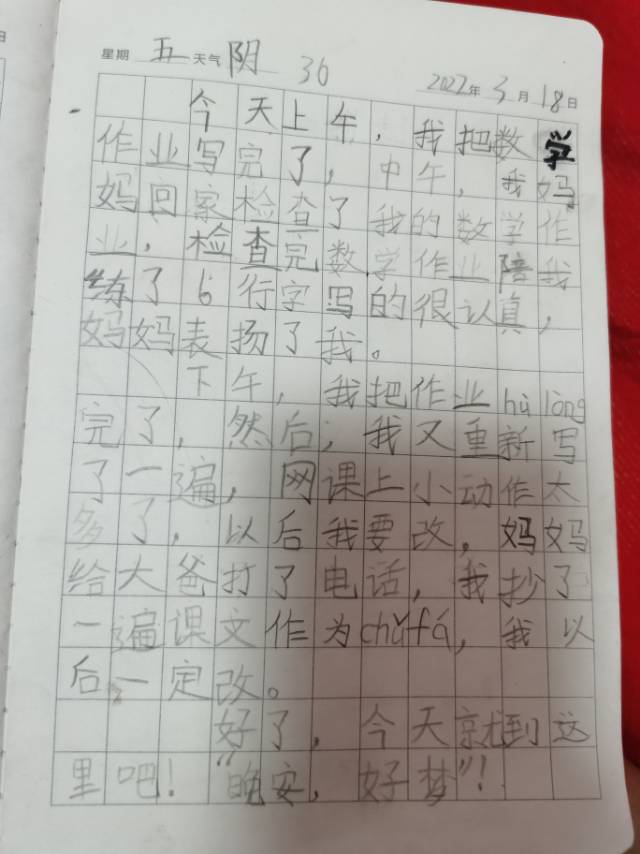 星期 五 天气 阴 36 2022年3月18日
今天上午，我把数学
作业写完了，中午，我妈
妈回家检查了我的数学作
业，检查完数学作业陪我
练了6行字写的很认真，
妈妈表扬了我。
下午，我把作业hù lòng
完了，然后，我又重新写
了一遍，网课上小动作太
多了，以后我要改，妈妈
给大爸打了电话，我抄了
一遍课文作为chǔfá，我以
后，一定改。
好了，今天就到这
里吧！“晚安，好梦”！